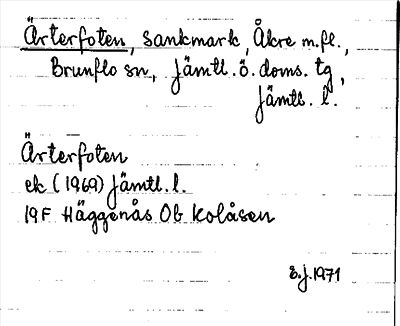 Ärterfoten, sankmark, Åkre m.fl.,
Brunflo sn, Jämtl. ö. doms. tg,
Jämtl. l.
Ärterfoten
ek (1969) Jämtl. l.
19F Häggenås Ob Kolåsen
s.j. 1971